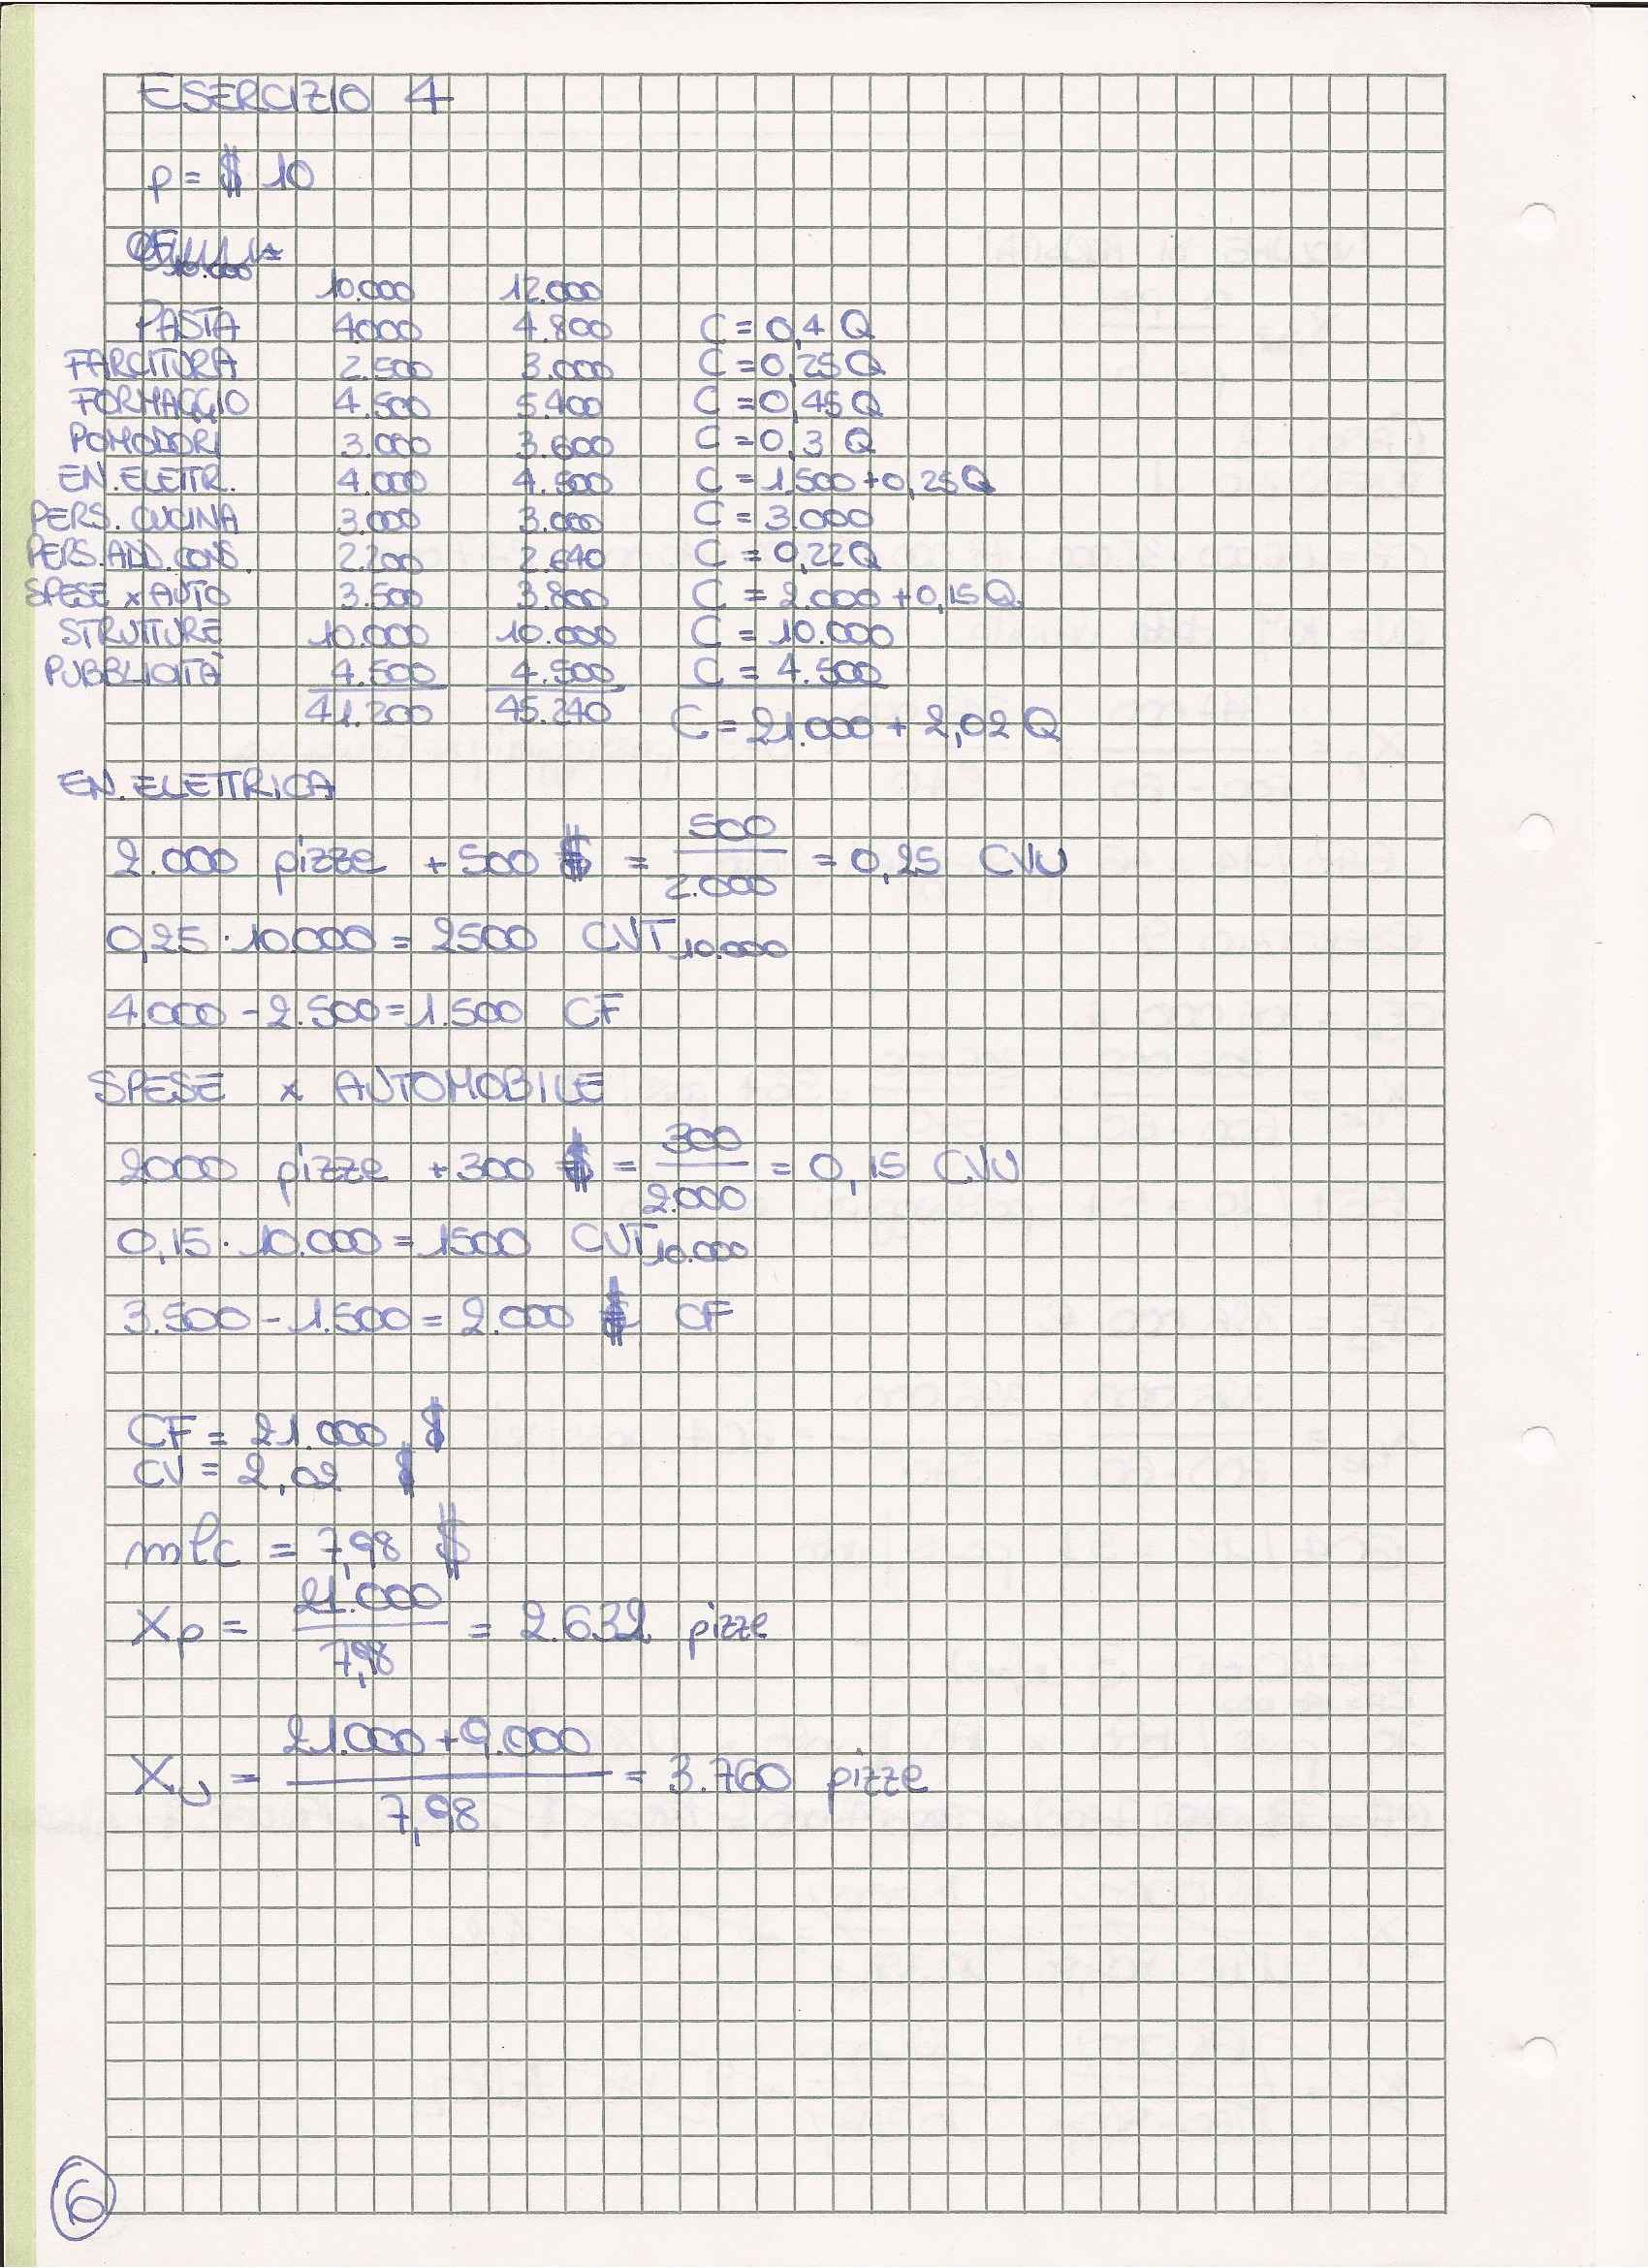 ESERCIZIO 4
p = $ 10
10.000 12.000
PASTA 4000 4.800 C = 0,4 Q
FARCITURA 2.500 3.000 C = 0,25Q
FORMAGGIO 4.500 5.400 C = 0,45Q
POMODORI 3.000 3.600 C = 0,3 Q
EN. ELETTR. 4.000 4.500 C = 1.500 + 0,25Q
PERS. CUCINA 3.000 3.000 C = 3.000
PERS. ADD. CONS. 2.200 2.640 C = 0,22Q
SPESE x AUTO 3.500 3.800 C = 2.000 + 0,15Q
STRUTTURE 10.000 10.000 C = 10.000
PUBBLICITÀ 4.500 4.500 C = 4.500
41.200 45.240 C = 21.000 + 2,02Q
EN. ELETTRICA
2.000 pizze + 500 $ = 500 / 2.000 = 0,25 CVU
0,25 · 10.000 = 2500 CVT 10.000
4.000 - 2.500 = 1.500 CF
SPESE x AUTOMOBILE
2000 pizze + 300 $ = 300 / 2.000 = 0,15 CVU
0,15 · 10.000 = 1500 CVT 10.000
3.500 - 1.500 = 2.000 $ CF
CF = 21.000 $
CV = 2,02 $
mlc = 7,98 $
Xp = 21.000 / 7,98 = 2.632 pizze
Xu = 21.000 + 9.000 / 7,98 = 3.760 pizze
6